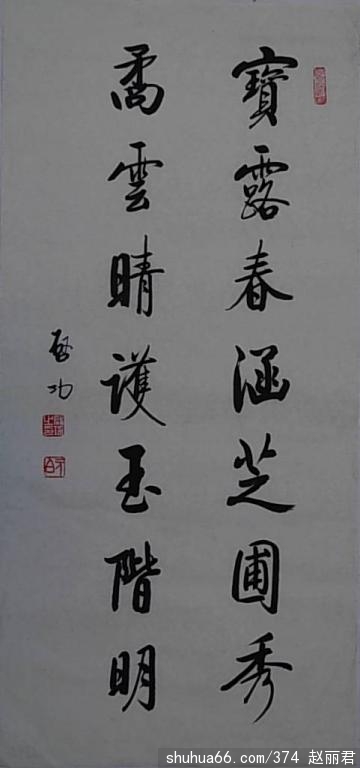 寶露春涵芝圃秀
矞雲晴護玉階明
啓功
shuhua66.com/374 赵丽君